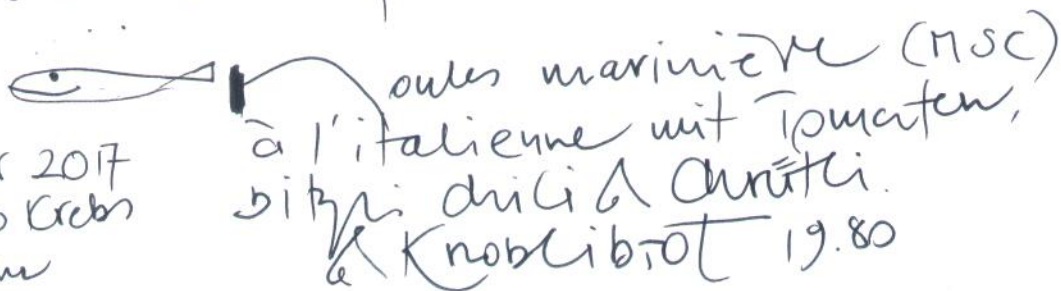 Moules marinière (MSC)
à l'italienne mit Tomaten,
bitzli chili & Chrütli.
& Knoblibrot 19.80
2017
Krebs